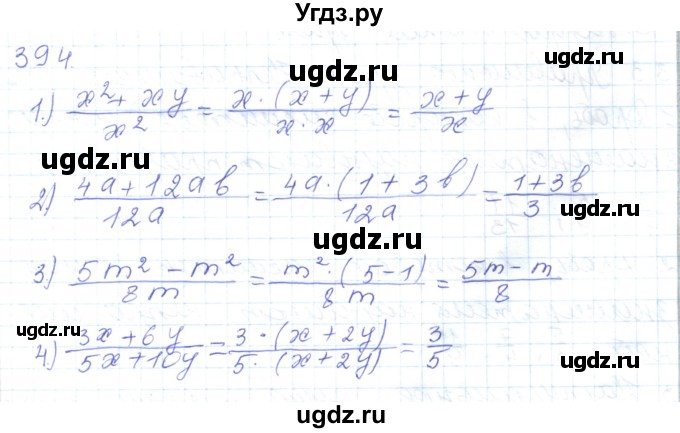 Угдз.ру
394.
ugdz.ru ugdz.ru
1.) (x² + xy)/x² = (x · (x + y))/(x · x) = (x + y)/x
ugdz.ru ugdz.ru
2) (4a + 12ab)/12a = (4a · (1 + 3b))/12a = (1 + 3b)/3
ugdz.ru
ugdz.ru
3) (5m² - m²)/8m = (m² · (5 - 1))/8m = (5m - m)/8
ugdz.ru
ugdz.ru
4) (3x + 6y)/(5x + 10y) = (3 · (x + 2y))/(5 · (x + 2y)) = 3/5
ugdz.ru
ugdz.ru
ugdz.ru